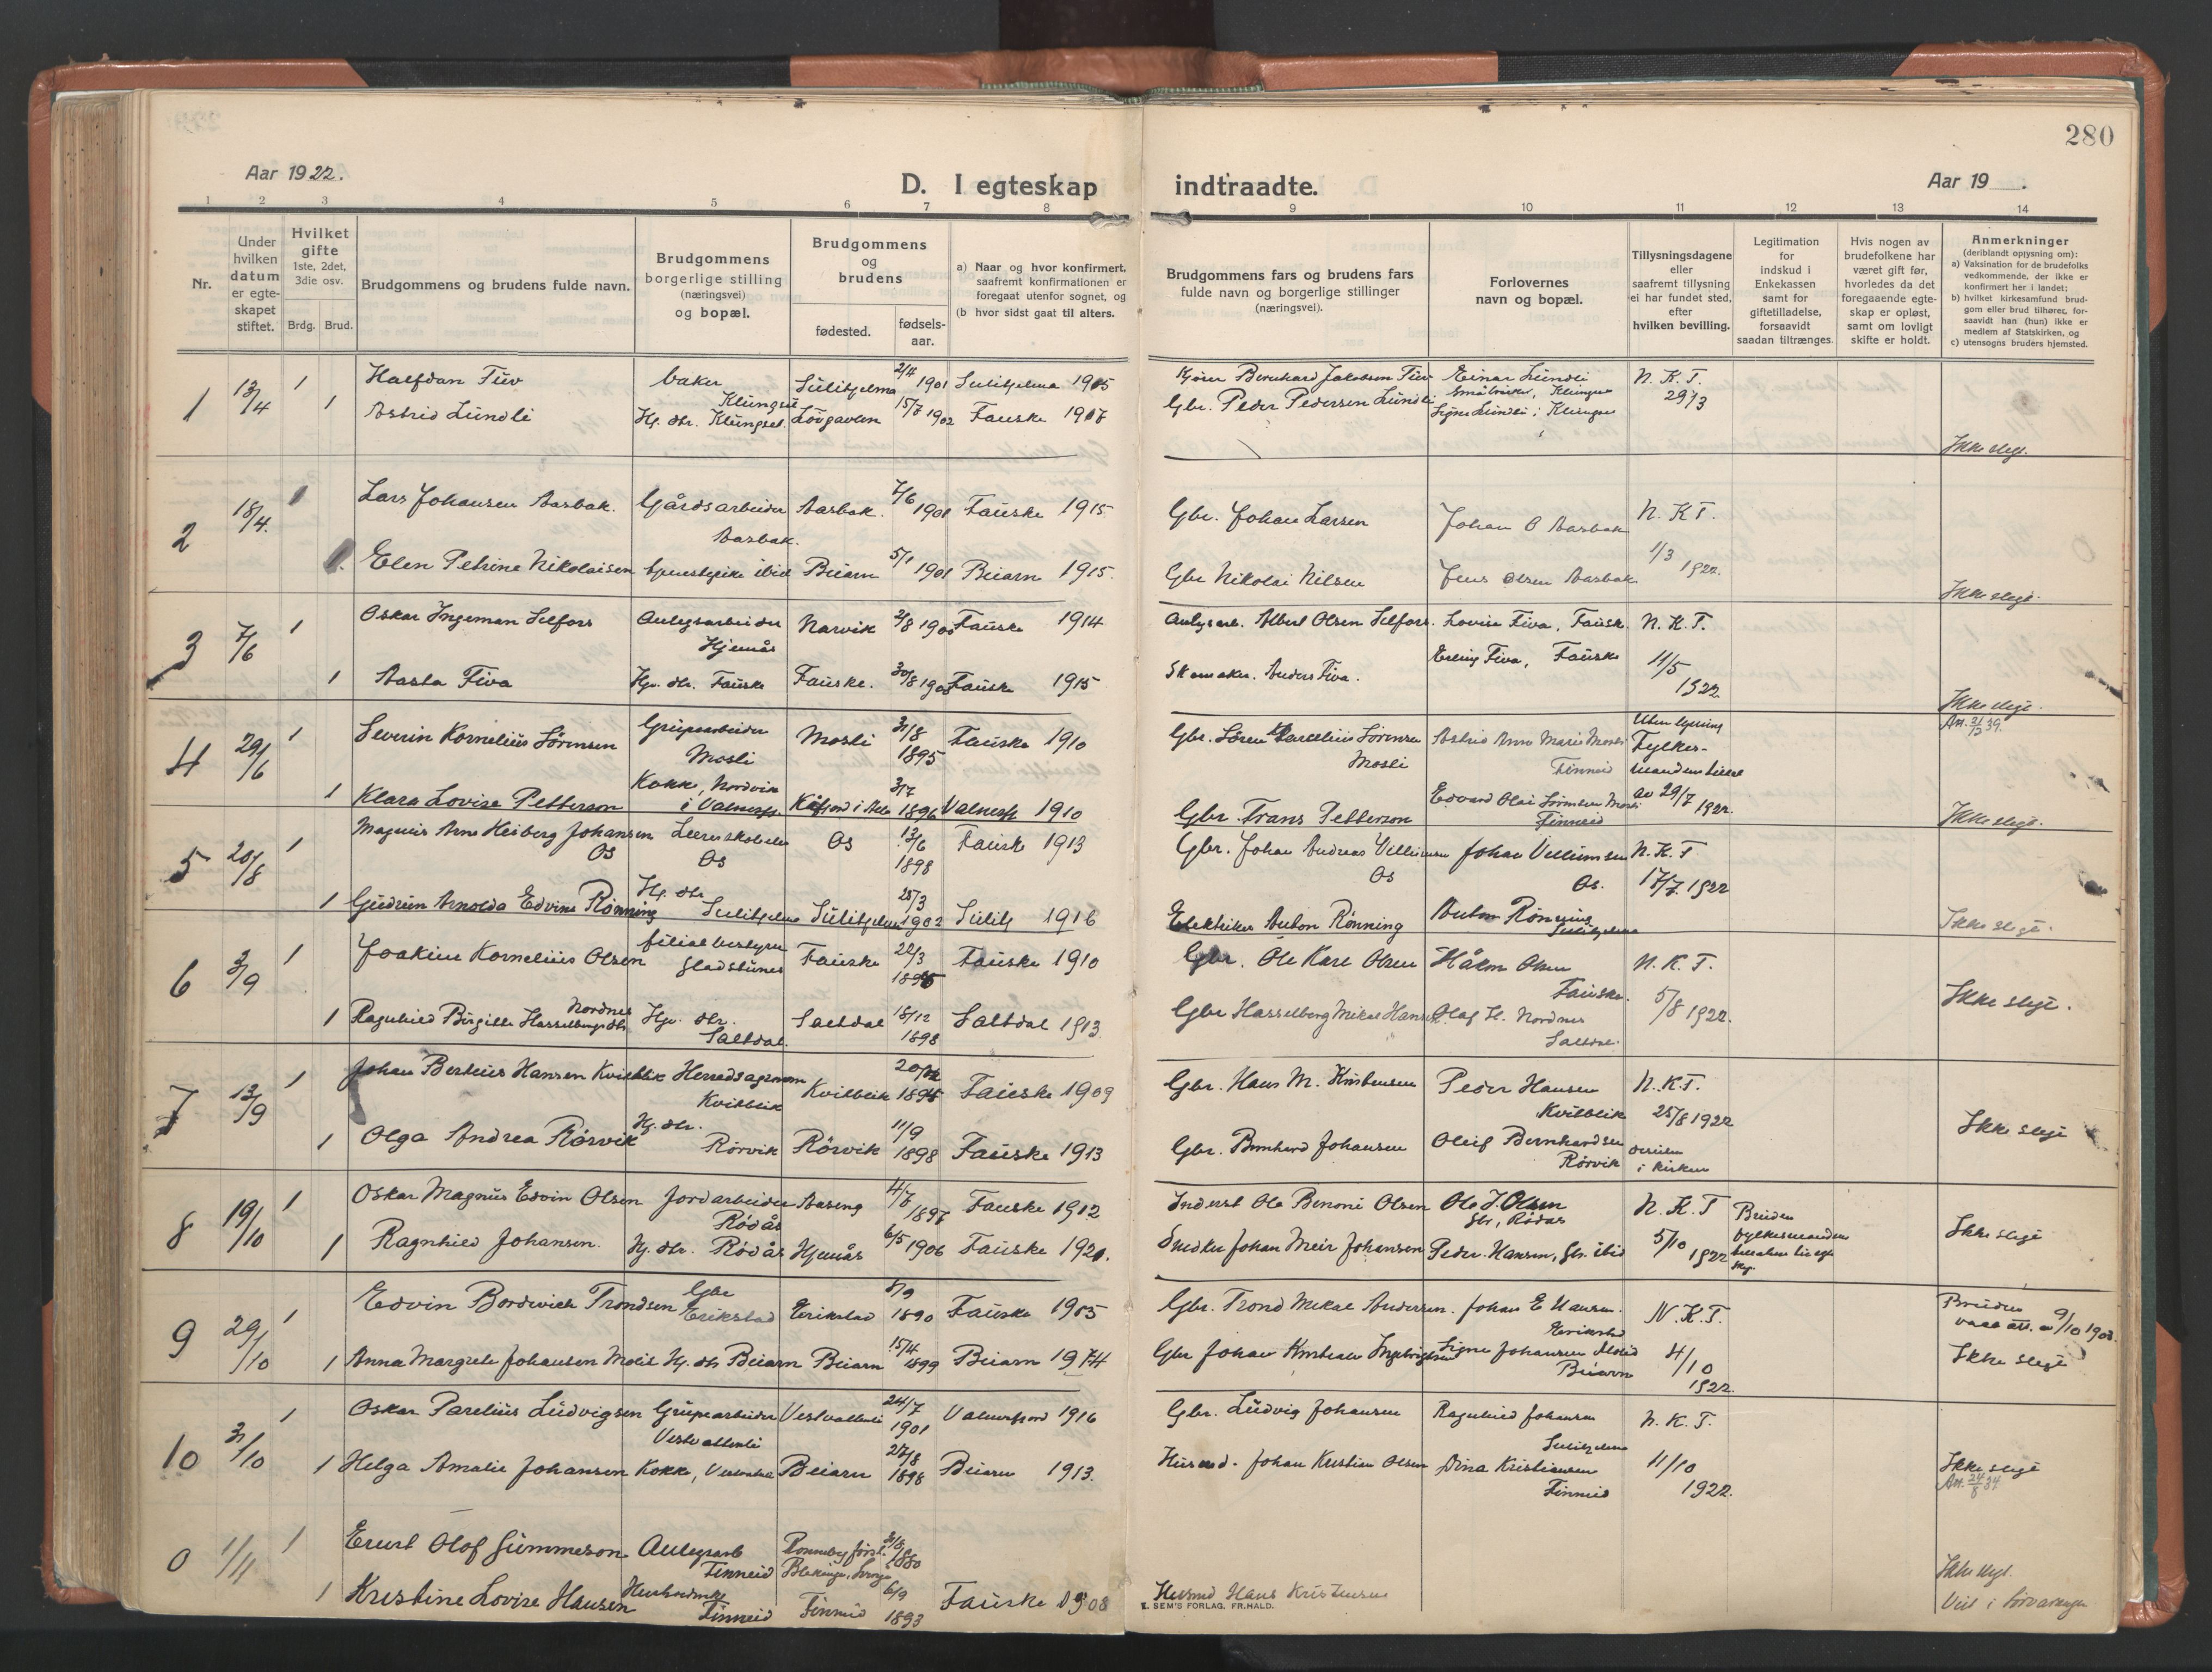 280
Aar 1922.
D. I egteskap indtraadte.
Aar 19 .
1 2 3 4 5 6 7 8 9 10 11 12 13 14
Nr.
Under hvilken datum er egteskapet stiftet.
Hvilket gifte 1ste, 2det, 3die osv.
Brdg. Brud.
Brudgommens og brudens fulde navn.
Brudgommens borgerlige stilling (næringsvei) og bopæl.
Brudgommens og brudens
fødested. fødselsaar.
a) Naar og hvor konfirmert, saafremt konfirmationen er foregaat utenfor sognet, og
(b hvor sidst gaat til alters.
Brudgommens fars og brudens fars fulde navn og borgerlige stillinger (næringsvei).
Forlovernes navn og bopæl.
Tillysningsdagene eller saafremt tillysning ei har fundet sted, efter hvilken bevilling.
Legitimation for indskud i Enkekassen samt for giftetilladelse, forsaavidt saadan tiltrænges.
Hvis nogen av brudefolkene har været gift før, hvorledes da det foregaaende egteskap er opløst, samt om lovligt skifte er holdt.
Anmerkninger (deriblandt opjysning om):
a) Vaksination for de brudefolks vedkommende, der ikke er konfirmert her i landet;
b) hvilket kirkesamfund brudgom eller brud tilhører, forsaavidt han (hun) ikke er medlem af Statskirken, og
c) utensogns bruders hjemsted.
1 13/4 1 Halfdan Tuv baker Klungset Sulitjelma 2/4 1901 Sulitjelma 1915 Bernhard Jakobsen Tuv Einar Lundli N. K. T.
1 Astrid Lundli Hj. dtr. Klungset. Løvgavlen 15/7 1902 Fauske 1917 Gbr. Peder Pedersen Lundli Signe Lundli, Klungset 29/3
Ikke slegt.
2 18/4. 1 Lars Johansen Aasbak. Gårdsarbeider Aasbak. Aasbak. 7/6 1901 Fauske 1915 Gbr. Johan Larsen Johan Aasbak N. K T.
1. Elen Petrine Nikolaisen tjenestepike ibid Beiarn 5/1 1901 Beiarn 1915. Gbr Nikolai Nilsen Jens Olsen Aasbak 1/3 1922.
Ikke slegt.
3 7/6 1 Oskar Ingeman Selfors Anlegsarbeider Hjemås Narvik Fauske 1914 Anlegsarb. Albert Olsen Selfors. Lovise Fiva, Fausk. N. K. T.
1 Aasta Fiva Hj. dtr. Fauske Fauske. Fauske 1915 Skomaker. Anders Fiva. Erling Fiva, Fauske 11/5 1922
Ikke slegt.
4 29/6 1 Severin Kornelius Sørensen Grubearbeider Mosli Mosli 31/8 1895 Fauske 1910 Gbr. Søren Sørensen Mosli Astrid Anna Marie Mosli Finneid
Att. 21/2 39.
1 Klara Lovise Petterson Kokke, Nordvik i Valnesfj. 3/7 1896 Valnesfj 1910 Gbr. Frans Petterson Edvard Olai Sørensen Mosli Finneid av 29/7 1922.
Ikke slegt.
5 20/8 1 Magnus Arne Heiberg Johansen Os Os Os 13/6 1898 Fauske 1913 Gbr. Johan Andreas Villumsen Os Johan Villumsen Os. N. K. T
1 Gudrun Arnolda Edvine Rønning Hj. dtr Sulitjelma Sulitjelma 25/3 1902 Sulitj 1916 Elektriker Anton Rønning Anton Rønning Sulitjelma 17/7. 1922
Ikke slegt.
6 3/9 1 Joakim Kornelius Olsen filialbestyrer Gladstunes Fauske 22/3 Fauske 1910 Gbr. Ole Karl Olsen Håkon Olsen Fauske. N. K. T.
1 Ragnhild Birgitte Hasselbergsdtr Nordnes Hj. dtr. Saltdal. Saltdal 18/12 1898 Saltdal 1913. Gbr Hasselberg Mikal Hansen Olaf H. Nordnes Saltdal. 5/8 1922.
Ikke slegt.
7 13/9 1 Johan Berteus Hansen Kvitblik Herredsagronom Kvitblik Kvitblik Fauske 1909 Gbr. Hans M. Kristensen Peder Hansen Kvitblik N. K. T. 25/8 1922
1 Olga Andrea Rørvik Hj. dtr. Rørvik Rørvik 11/9 1898 Fauske 1913 Gbr. Bernhard Johansen Oluf Bernhardsen Rørvik i kirken
Ikke slegt
8 19/10 1 Oskar Magnus Edvin Olsen Jordarbeider Rødås Aaseng 4/7 1897 Fauske 1912 Inderst Ole Benoni Olsen Ole J. Olsen Gbr, Rødås N. K. T
1 Ragnhild Johansen. Hj. dtr. Rødås Hjemås 6/5 1906 Fauske 1920. Snedker Johan Meir Johansen Peder Hansen, Gbr. ibid 5/10 1922
Ikke slegt
9 29/10 1 Edvin Bordevick Trondsen Gbr Erikstad Erikstad 8/9 1890 Fauske 1905 Gbr. Trond Mikal Andersen. Johan E Hansen. Erikstad N. K. T.
Bruden vacc att. av 9/10 1903.
1 Anna Margrete Johansen Molid Hj. dtr Beiarn Beiarn 15/4 1899 Beiarn 1914 Gbr Johan Kristian Ingebrigtsen Signe Johansen Molid Beiarn 4/10 1922.
Ikke slegt
10 31/10 1 Oskar Parelius Ludvigsen Grubearbeider Vestvatnli Vestvatnli 24/7 1901 Valnesfjord 1916 Gbr. Ludvig Johansen Ragnhild Johansen Sulitjelma N. K. T.
1 Helga Amalie Johansen Kokke, Beiarn 27/8 1898 Beiarn 1913. Husmd. Johan Kristian Olsen Dina Kristiansen Finneid 11/10 1922.
Ikke slegt
Att. 24/8 34
0 1/11 1 Ernst Olof Gummeson Anlegsarb Finneid Ronneby Blekinge, Sverige 1880
1 Kristine Lovise Hansen Finneid Finneid 6/9 1893 Fauske 1908 Husmd Hans Kristensen
Ikke slegt.
Viet i
E. SEM'S FORLAG. FR.HALD.